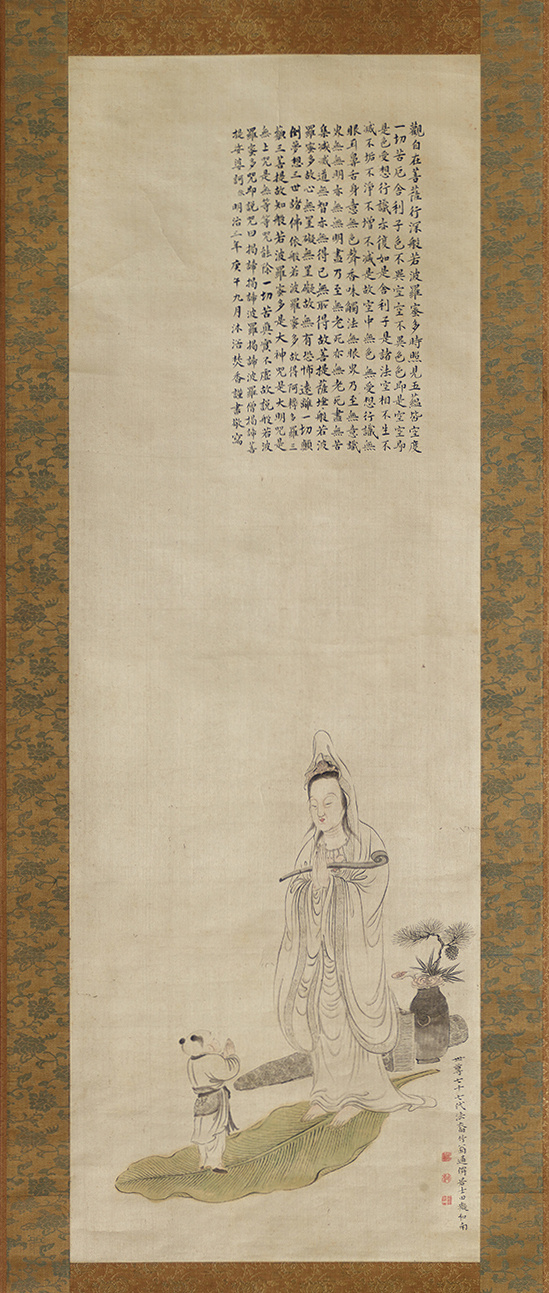 觀自在菩薩行深般若波羅蜜多時照見五蘊皆空度
一切苦厄舍利子色不異空空不異色色即是空空即
是色受想行識亦復如是舍利子是諸法空相不生不
滅不垢不淨不增不減是故空中無色無受想行識無
眼耳鼻舌身意無色聲香味觸法無眼界乃至無意識
界無無明亦無無明盡乃至無老死亦無老死盡無苦
集滅道無智亦無得已無所得故菩提薩埵般若波
羅蜜多故心無罣礙無罣礙故無有恐怖遠離一切顛
倒夢想三世諸佛依般若波羅蜜多故得阿耨多羅三
藐三菩提故知般若波羅蜜多是大神咒是大明咒是
無上咒是無等等咒能除一切苦真實不虛故說般若波
羅蜜多咒即說咒曰揭諦揭諦波羅揭諦波羅僧揭諦菩
提娑訶明治年庚午九月沐浴焚香謹書敬寫
世尊七十七代法裔竹翁道居士田凝和南